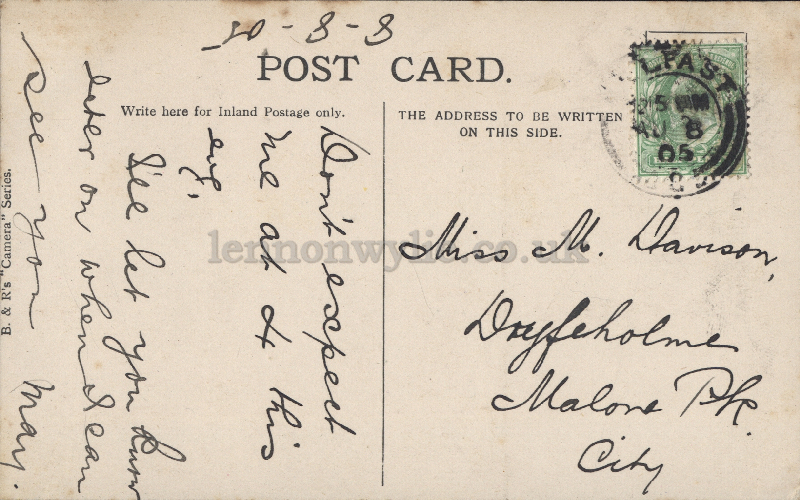 8-8-05
POST CARD.
Write here for Inland Postage only.
THE ADDRESS TO BE WRITTEN
ON THIS SIDE.
BELFAST
AU 8
05
Don't expect
me at 4 this
evg,
I'll let you know
later on when I can
see you May.
Miss M. Davison,
Dryfeholme
Malone Pk.
City
B. & R's "Camera" Series.
lennonwylie.co.uk